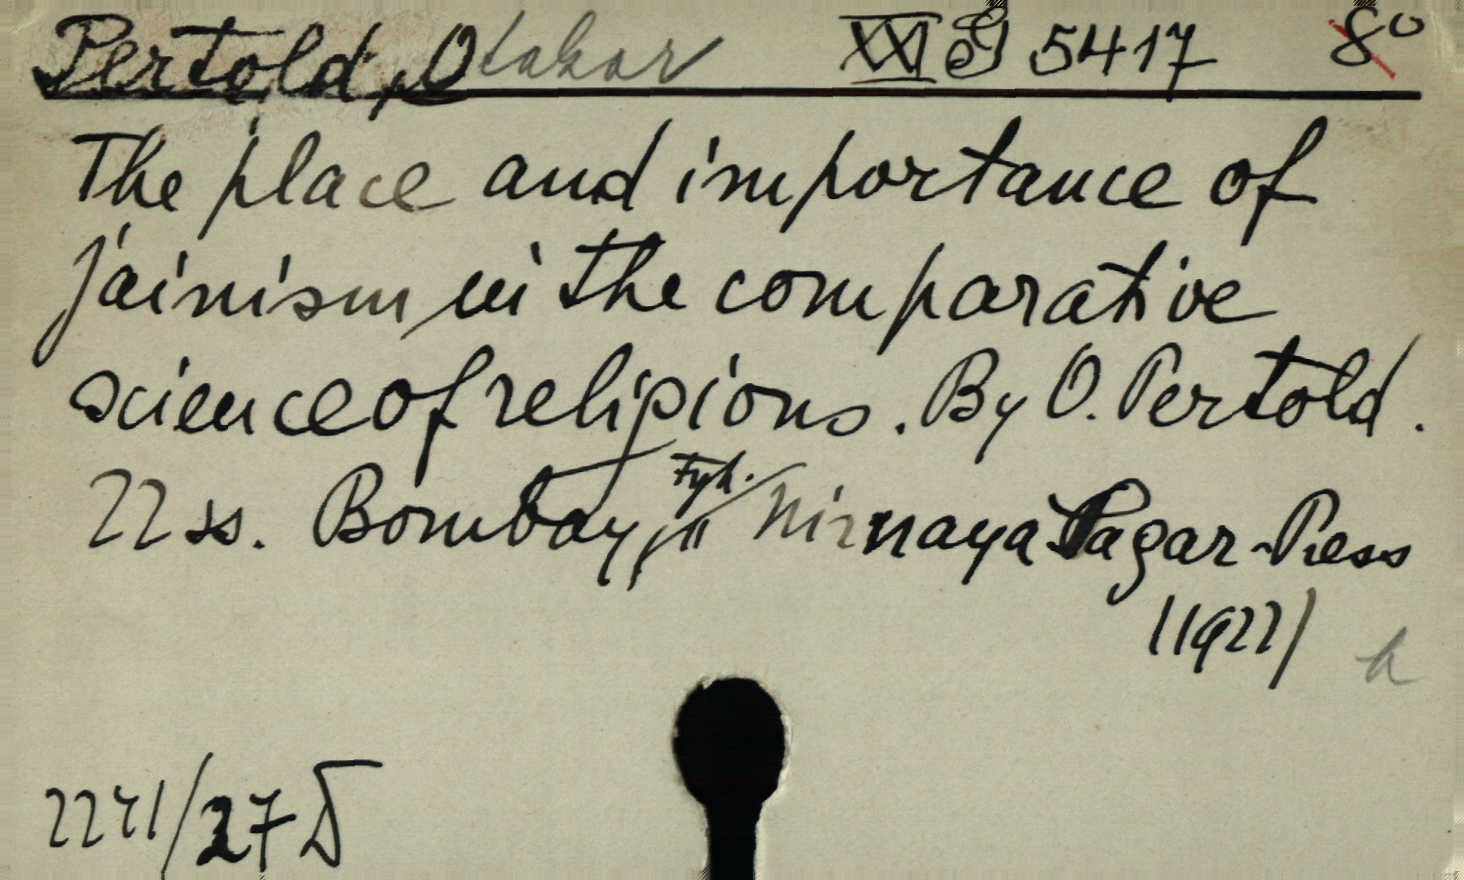 Pertold, Otakar XXI G 5417 8°
The place and importance of
jainism in the comparative
science of religions. By O. Pertold.
22 ss. Bombay, Nirnaya Sagar-Press
(1922)
h
2241/27 D